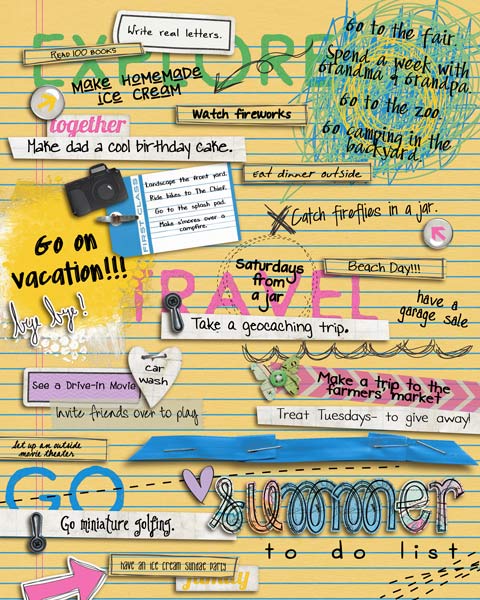 Write real letters.
EXPLORE
READ 100 BOOKS
Go to the fair
Spend a week with
Grandma & Grandpa
Go to the zoo
Go camping in the
backyard.
Make Homemade
Ice Cream
Watch fireworks
together
Make dad a cool birthday cake.
Eat dinner outside
FIRST CLASS
Landscape the front yard.
Ride bikes to The Chief.
Go to the splash pad.
Make s'mores over a
campfire.
Catch fireflies in a jar.
Go on
vacation!!!
bye bye!
Saturdays
from
a jar
TRAVEL
Beach Day!!!
have a
garage sale
Take a geocaching trip.
See a Drive-in Movie
car
wash
Invite friends over to play
Make a trip to the
farmers' market
Treat Tuesdays- to give away!
set up an outside
movie theater
GO
summer
to do list
Go miniature golfing.
have an ice cream sundae party
family